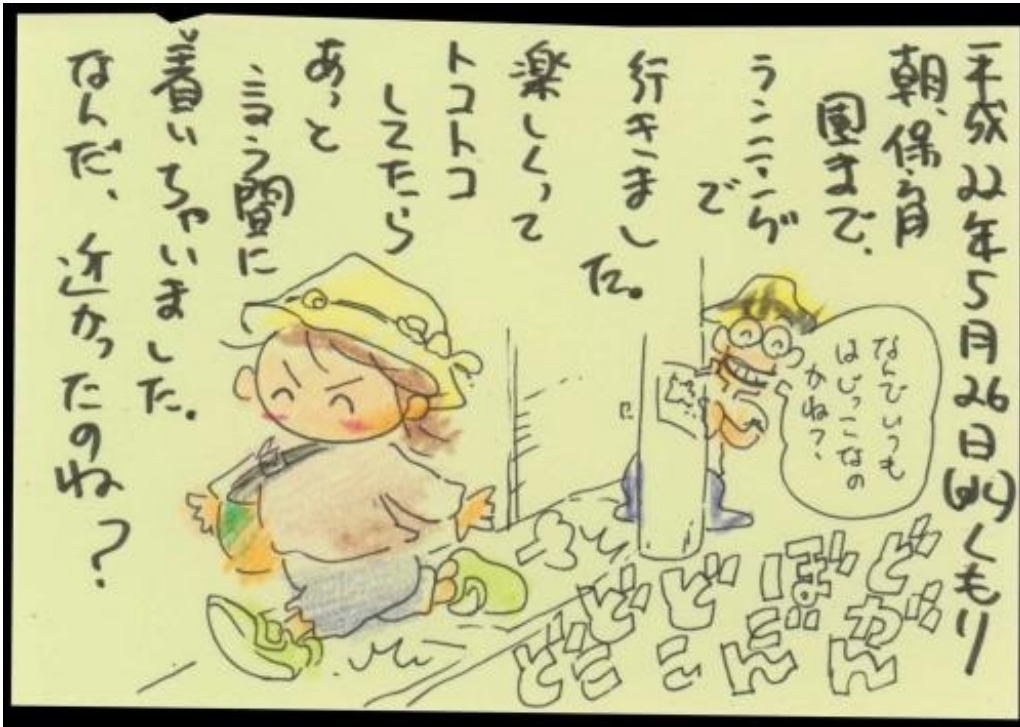 平成22年5月26日(水)くもり
朝、保育
園まで、
ランニング
で
行きまし
た。
楽しくって
トコトコ
してたら
あっと
言う間に
着いちゃいました。
なんだ、近かったのね?
なんでいつも
はじっこなの
かね?